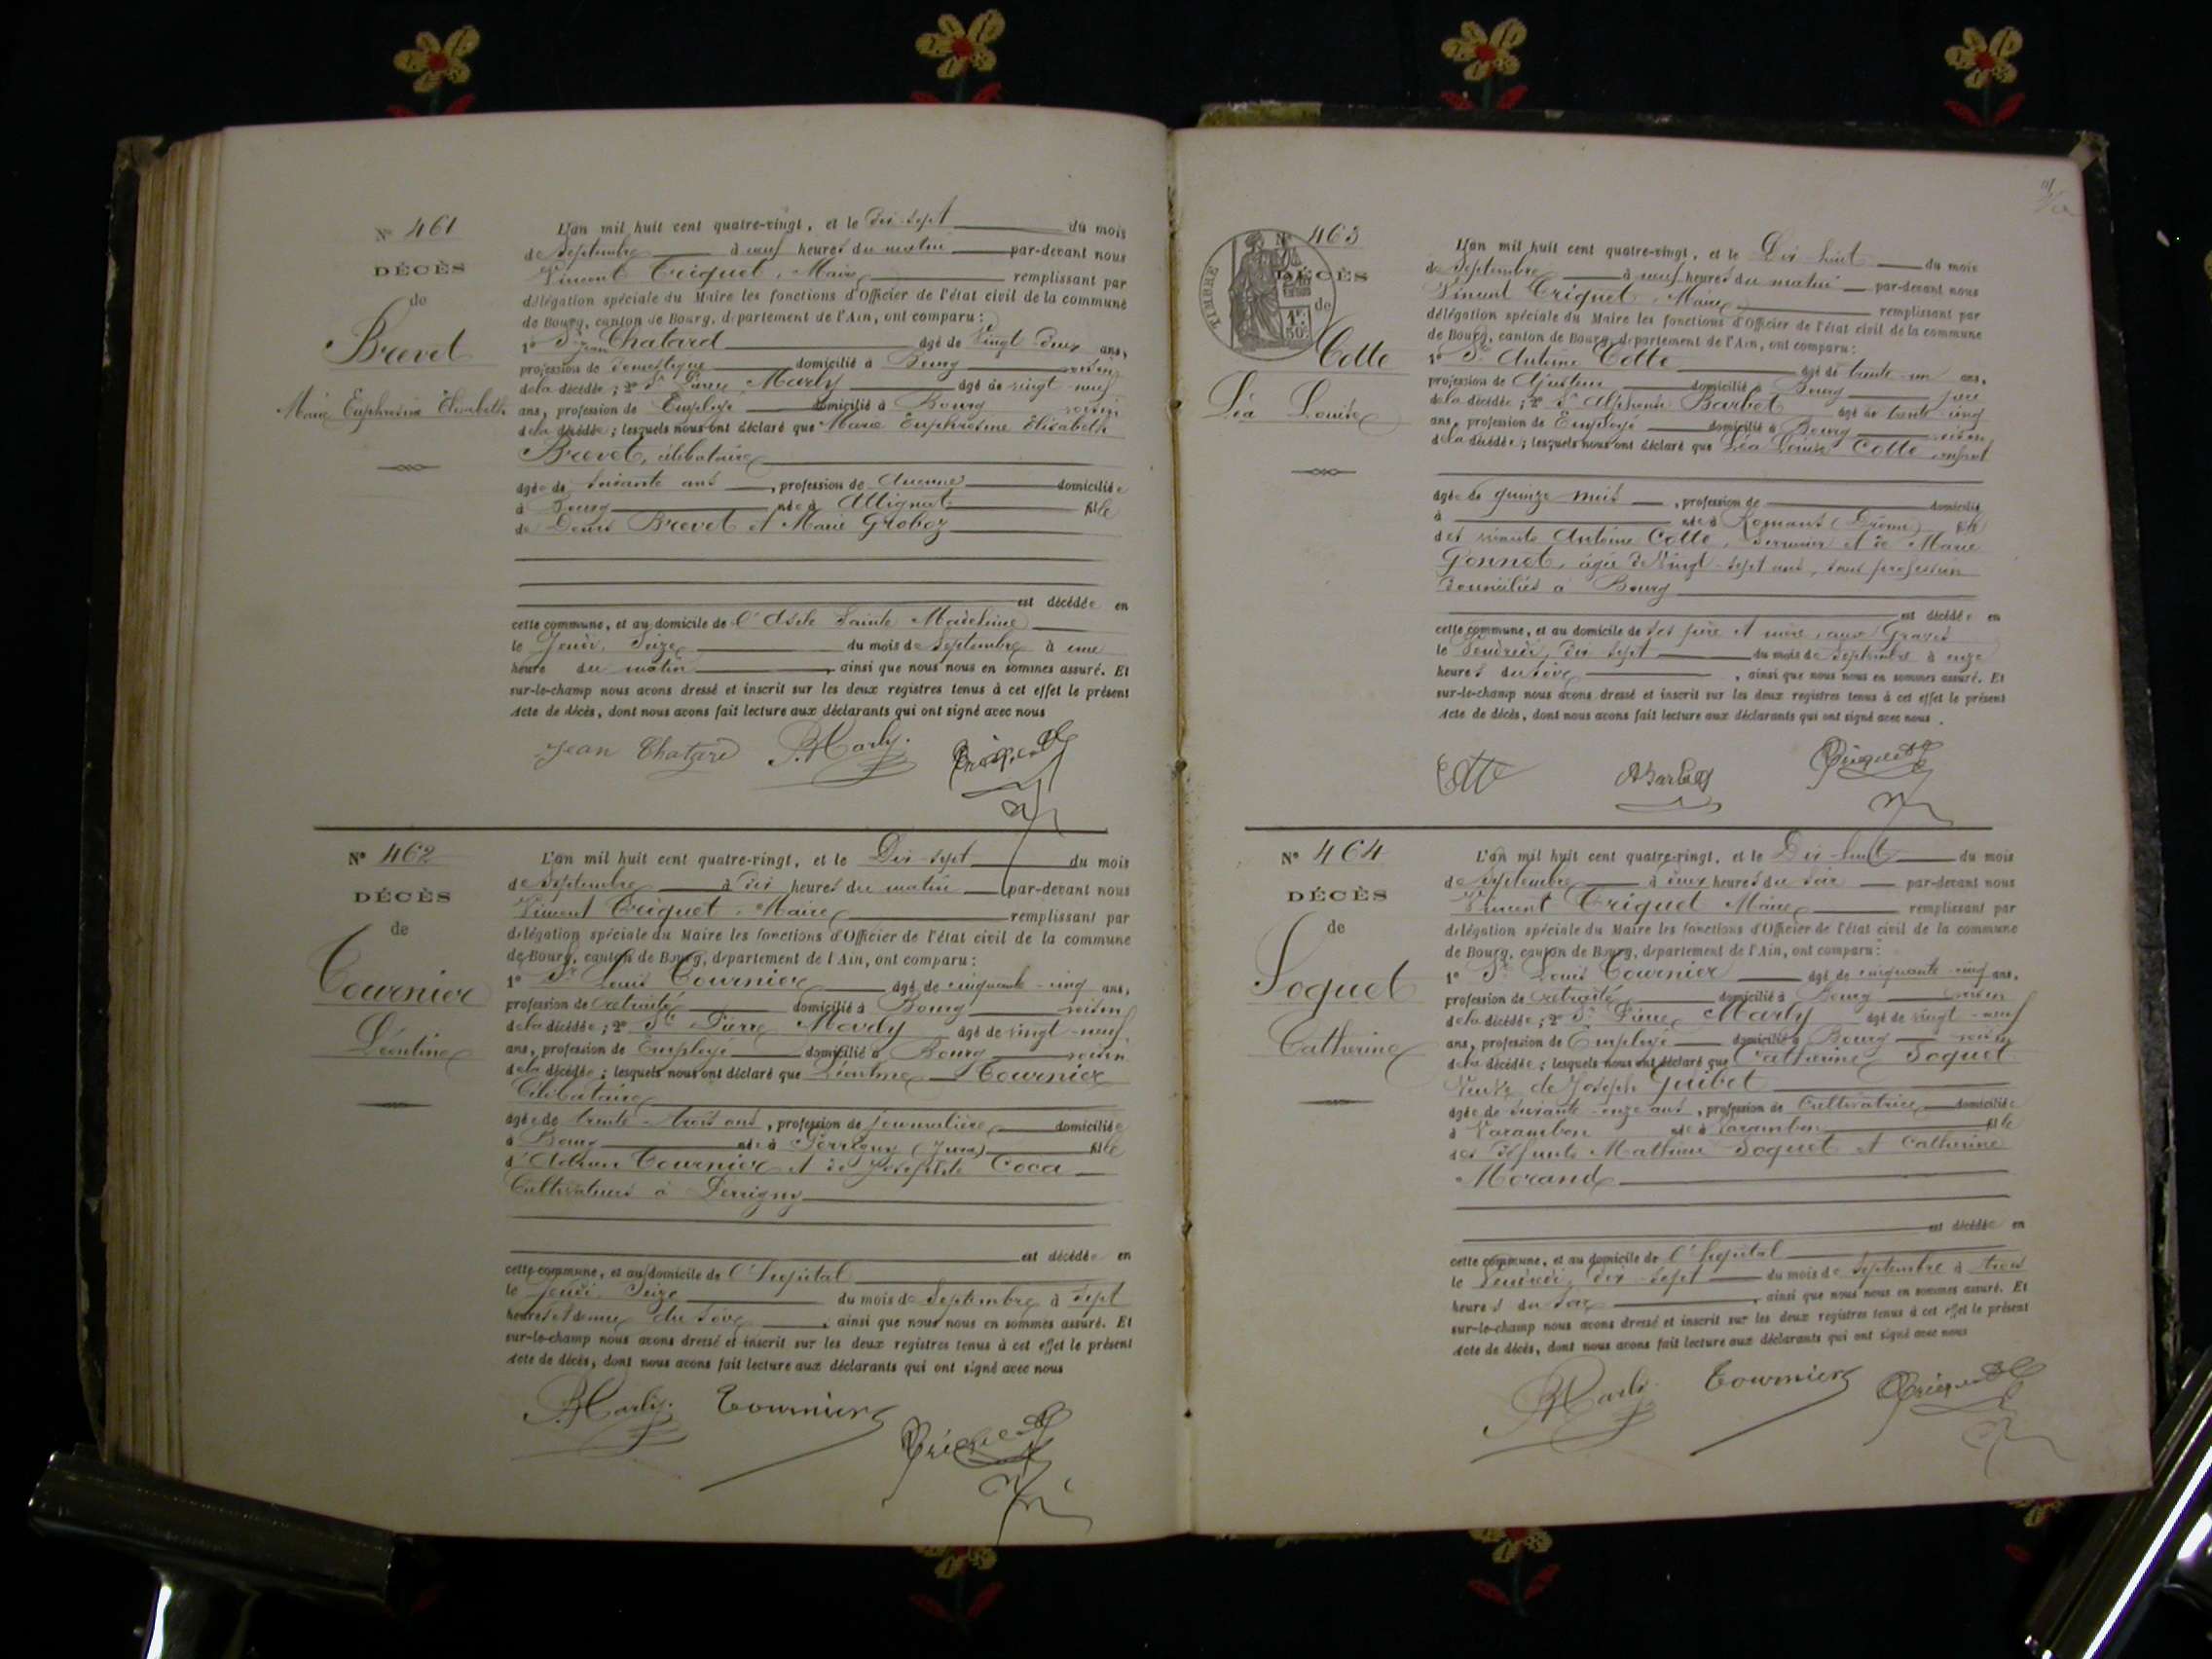 N° 461
DÉCÈS
de
Brevet
Marie Euphrosine Elisabeth
L'an mil huit cent quatre-vingt, et le dix-sept du mois
de Septembre à neuf heures du matin par-devant nous
Vincent Triquet, Maire remplissant par
délégation spéciale du Maire les fonctions d'Officier de l'état civil de la commune
de Bourg, canton de Bourg, département de l'Ain, ont comparu :
1° Sr Jean Chatard âgé de vingt deux ans,
profession de domestique domicilié à Bourg voisin
de la décédée ; 2° Sr Pierre Marly âgé de vingt-neuf
ans, profession de Employé domicilié à Bourg voisin
de la décédée ; lesquels nous ont déclaré que Marie Euphrosine Elisabeth
Brevet, célibataire
âgée de soixante ans, profession de Aucune domiciliée
à Bourg née à Attignat fille
de Denis Brevet et Marie Groboz
est décédée en
cette commune, et au domicile de l'Asile Sainte Madeleine
le Jeudi, Seize du mois de Septembre à une
heure du matin, ainsi que nous nous en sommes assuré. Et
sur-le-champ nous avons dressé et inscrit sur les deux registres tenus à cet effet le présent
Acte de décès, dont nous avons fait lecture aux déclarants qui ont signé avec nous
Jean Chatard P. Marly. Triquet
N° 462
DÉCÈS
de
Tournier
Léontine
L'an mil huit cent quatre-vingt, et le Dix-sept du mois
de Septembre à dix heures du matin par-devant nous
Vincent Triquet, Maire remplissant par
délégation spéciale du Maire les fonctions d'Officier de l'état civil de la commune
de Bourg, canton de Bourg, département de l'Ain, ont comparu :
1° Sr Louis Tournier âgé de cinquante-cinq ans,
profession de retraité domicilié à Bourg voisin
de la décédée ; 2° Sr Pierre Marly âgé de vingt-neuf
ans, profession de Employé domicilié à Bourg voisin
de la décédée ; lesquels nous ont déclaré que Léontine Tournier
Célibataire
âgée de trente-trois ans, profession de journalière domiciliée
à Bourg née à Perrigny (Jura) fille
d'Adrien Tournier et de Josephte Coca
Cultivateurs à Perrigny
est décédée en
cette commune, et au domicile de l'hopital
le Jeudi, Seize du mois de Septembre à sept
heures et demie du soir, ainsi que nous nous en sommes assuré. Et
sur-le-champ nous avons dressé et inscrit sur les deux registres tenus à cet effet le présent
Acte de décès, dont nous avons fait lecture aux déclarants qui ont signé avec nous
P. Marly. Tournier Triquet
N° 463
DÉCÈS
de
TIMBRE
1F.
50c
Cotte
Léa Louise
L'an mil huit cent quatre-vingt, et le Dix-huit du mois
de Septembre à neuf heures du matin par-devant nous
Vincent Triquet, Maire remplissant par
délégation spéciale du Maire les fonctions d'Officier de l'état civil de la commune
de Bourg, canton de Bourg, département de l'Ain, ont comparu :
1° Sr Antoine Cotte âgé de trente-un ans,
profession de Ajusteur domicilié à Bourg père
de la décédée ; 2° Sr Alphonse Barbet âgé de trente-cinq
ans, profession de Employé domicilié à Bourg voisin
de la décédée ; lesquels nous ont déclaré que Léa Louise Cotte enfant
âgée de quinze mois, profession de domicilié
à née à Romans (Drôme) fille
des vivants Antoine Cotte, serrurier et de Marie
Gonnet, âgée de Vingt-sept ans, sans profession
domiciliés à Bourg
est décédée en
cette commune, et au domicile de ses père et mère, aux Graves
le Vendredi, dix sept du mois de Septembre à onze
heures du soir, ainsi que nous nous en sommes assuré. Et
sur-le-champ nous avons dressé et inscrit sur les deux registres tenus à cet effet le présent
Acte de décès, dont nous avons fait lecture aux déclarants qui ont signé avec nous.
Cotte ABarbet Triquet
N° 464
DÉCÈS
de
Soquet
Catherine
L'an mil huit cent quatre-vingt, et le Dix-huit du mois
de Septembre à deux heures du soir par-devant nous
Vincent Triquet Maire remplissant par
délégation spéciale du Maire les fonctions d'Officier de l'état civil de la commune
de Bourg, canton de Bourg, département de l'Ain, ont comparu :
1° Sr Louis Tournier âgé de cinquante-cinq ans,
profession de retraité domicilié à Bourg voisin
de la décédée ; 2° Sr Pierre Marly âgé de vingt-neuf
ans, profession de Employé domicilié à Bourg voisin
de la décédée ; lesquels nous ont déclaré que Catherine Soquet
Veuve de Joseph Guibet
âgée de soixante-onze ans, profession de Cultivatrice domiciliée
à Varambon née à Varambon fille
des défunts Mathieu Soquet et Catherine
Morand
est décédée en
cette commune, et au domicile de l'hopital
le Vendredi, dix-sept du mois de Septembre à trois
heures du soir, ainsi que nous nous en sommes assuré. Et
sur-le-champ nous avons dressé et inscrit sur les deux registres tenus à cet effet le présent
Acte de décès, dont nous avons fait lecture aux déclarants qui ont signé avec nous
P. Marly Tournier Triquet